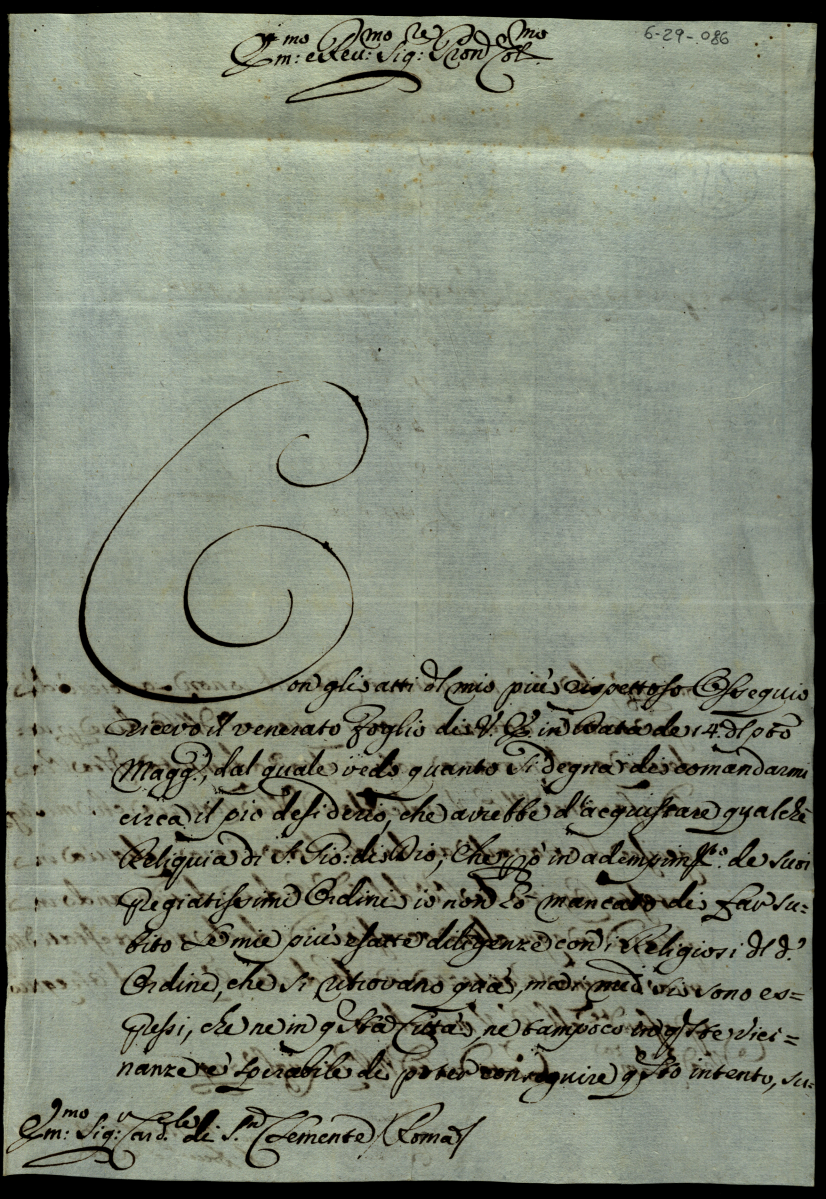 6-29-086
Em:mo e Rev:mo Sig:re Pron Col:mo
Con gli atti dl mio più rispettoso Ossequio
ricevo il venerato foglio di V. E. in data de 14. dl pto
Magg:, dal quale vedo quanto si degna de comandarmi
circa il pio desiderio, che avrebbe d'acquistare qualche
Reliquia di S. Gio: di Dio; Che però in adempimto. de suoi
Pregiatissimi Ordini io non hò mancato di far su=
bito le mie più esatte diligenze con i Religiosi dl d.
Ordine, che si ritrovano quà, mà i med. si sono es=
pressi, che ne in qsta Città, ne tampoco in qste vici=
nanze è sperabile di poter conseguire qsto intento, su=
Em:mo Sig:r Card:le di S. Clemente / Roma /